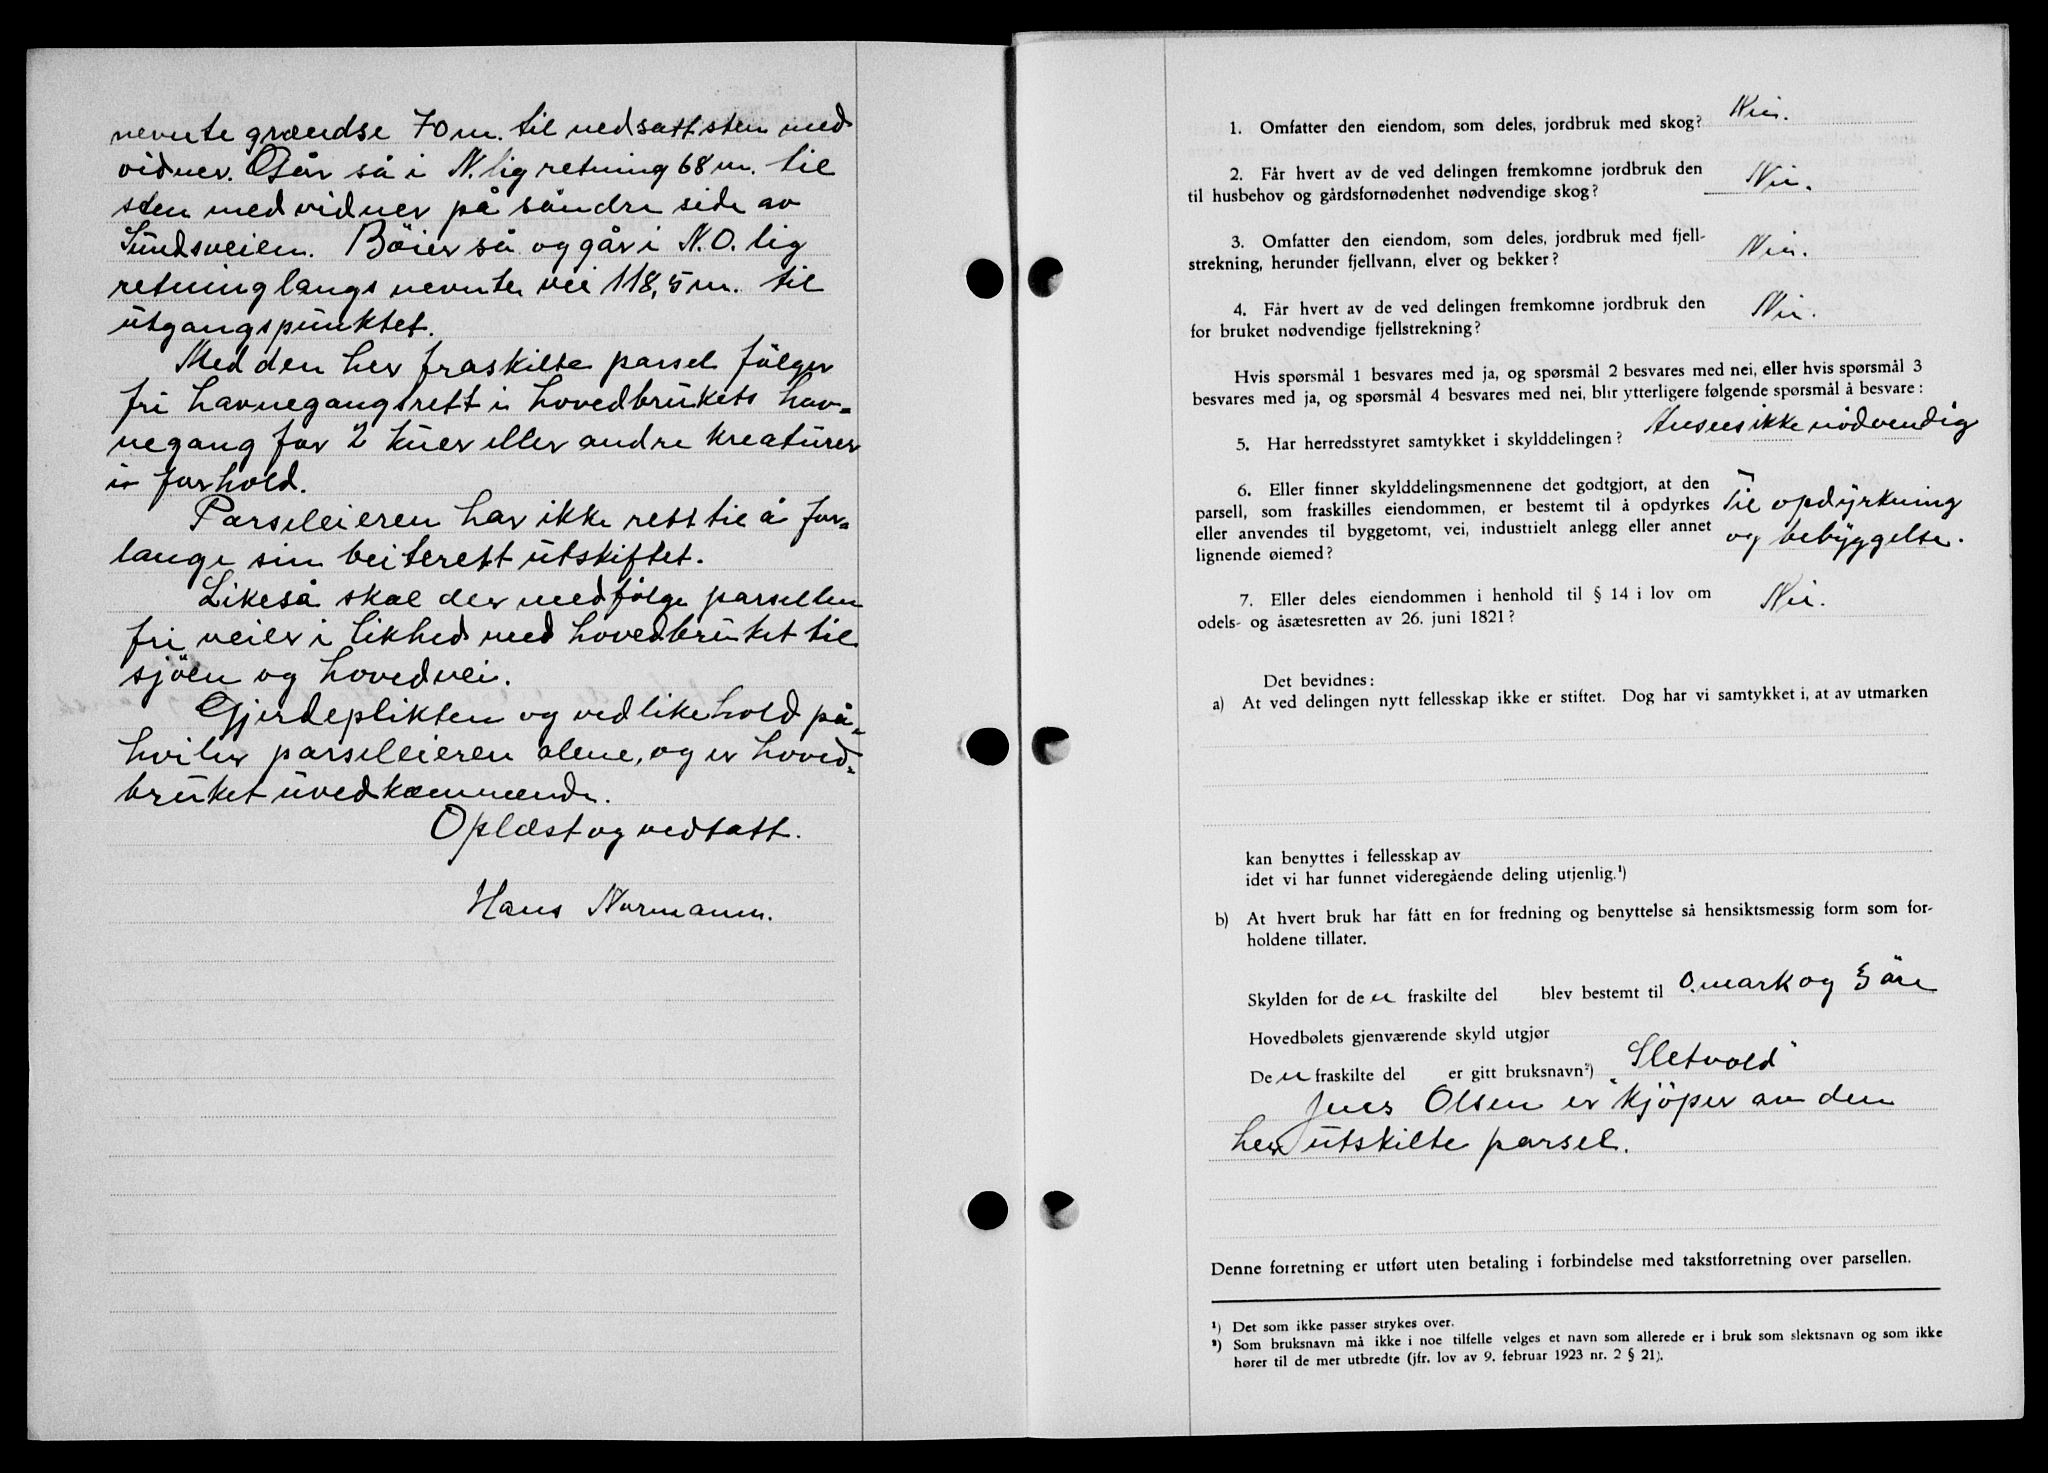 nevnte grændse 70 m. til nedsatt sten med
vidner. Går så i N.lig retning 68 m. til
sten med vidner på söndre side av
Sundsveien. Böier så og går i N.O. lig
retning langs nevnte vei 118,5 m. til
utgangspunktet.
Med den her fraskilte parsel fölger
fri havnegangsrett i hovedbrukets hav-
negang for 2 kuer eller andre kreaturer
i forhold.
Parseleieren har ikke rett til å for-
lange sin beiterett utskiftet.
Likeså skal der medfølge parsellen
fri veier i likhed med hovedbruket til
sjöen og hovedvei.
Gjerdeplikten og vedlikehold på-
hviler parseleieren alene, og er hoved-
bruket uvedkommende.
Oplæst og vedtatt.
Hans Normann.
1. Omfatter den eiendom, som deles, jordbruk med skog? Nei.
2. Får hvert av de ved delingen fremkomne jordbruk den
til husbehov og gårdsfornødenhet nødvendige skog? Nei.
3. Omfatter den eiendom, som deles, jordbruk med fjell-
strekning, herunder fjellvann, elver og bekker? Nei.
4. Får hvert av de ved delingen fremkomne jordbruk den
for bruket nødvendige fjellstrekning? Nei.
Hvis spørsmål 1 besvares med ja, og spørsmål 2 besvares med nei, eller hvis spørsmål 3
besvares med ja, og spørsmål 4 besvares med nei, blir ytterligere følgende spørsmål å besvare:
5. Har herredsstyret samtykket i skylddelingen? Ansees ikke nödvendig
6. Eller finner skylddelingsmennene det godtgjort, at den
parsell, som fraskilles eiendommen, er bestemt til å opdyrkes Til opdyrkning
eller anvendes til byggetomt, vei, industrielt anlegg eller annet og bebyggelse.
lignende øiemed?
7. Eller deles eiendommen i henhold til § 14 i lov om
odels- og åsætesretten av 26. juni 1821? Nei.
Det bevidnes:
a) At ved delingen nytt fellesskap ikke er stiftet. Dog har vi samtykket i, at av utmarken
kan benyttes i fellesskap av
idet vi har funnet videregående deling utjenlig.¹)
b) At hvert bruk har fått en for fredning og benyttelse så hensiktsmessig form som for-
holdene tillater.
Skylden for den fraskilte del blev bestemt til 0.mark og 5 öre
Hovedbølets gjenværende skyld utgjør
Den fraskilte del er gitt bruksnavn²) "Sletvold"
Jens Olsen er kjöper av den
her utskilte parsel.
Denne forretning er utført uten betaling i forbindelse med takstforretning over parsellen.
¹) Det som ikke passer strykes over.
²) Som bruksnavn må ikke i noe tilfelle velges et navn som allerede er i bruk som slektsnavn og som ikke
hører til de mer utbredte (jfr. lov av 9. februar 1923 nr. 2 § 21).